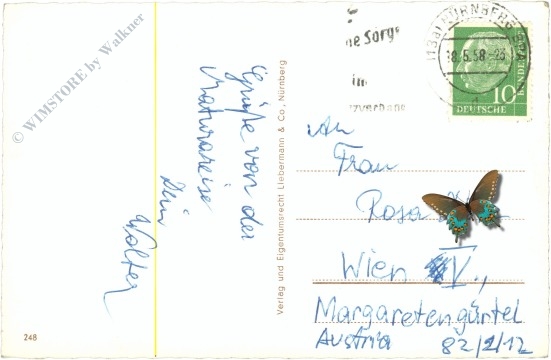 © WIMSTORE by Walkner
Grüße von der
Maturareise
Dein
Walter
248
Verlag und Eigentumsrecht Liebermann & Co., Nürnberg
ne Sorge
im
tzverband
(13a) NÜRNBERG
8.5.58
10
DEUTSCHE
BUNDESPOST
An
Frau
Rosa
Wien V.,
Margaretengürtel
Austria 82/2/12